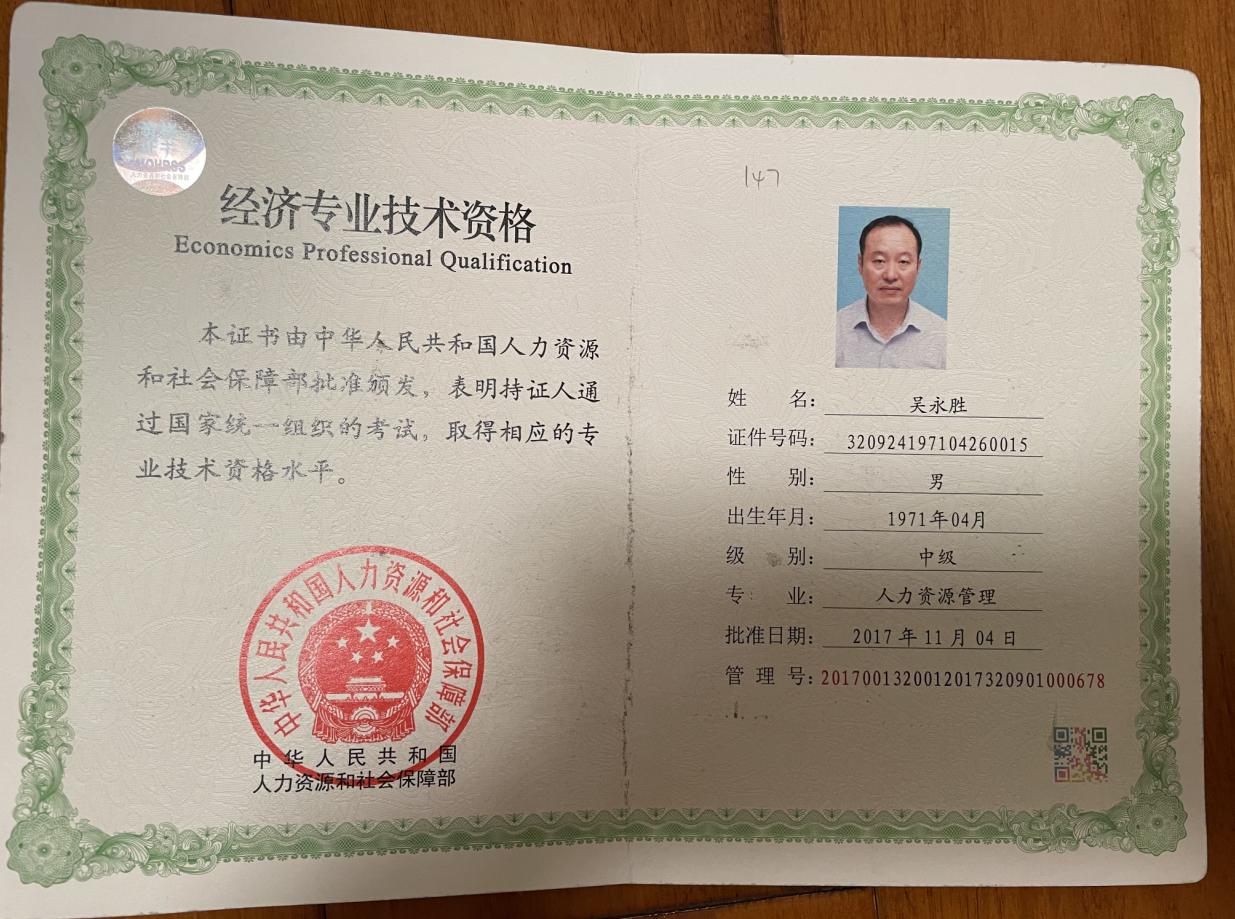 经济专业技术资格
Economics Professional Qualification
本证书由中华人民共和国人力资源
和社会保障部批准颁发，表明持证人通
过国家统一组织的考试，取得相应的专
业技术资格水平。
中华人民共和国人力资源和社会保障部
中华人民共和国
人力资源和社会保障部
147
姓名：吴永胜
证件号码：320924197104260015
性别：男
出生年月：1971年04月
级别：中级
专业：人力资源管理
批准日期：2017年11月04日
管理号：2017001320012017320901000678